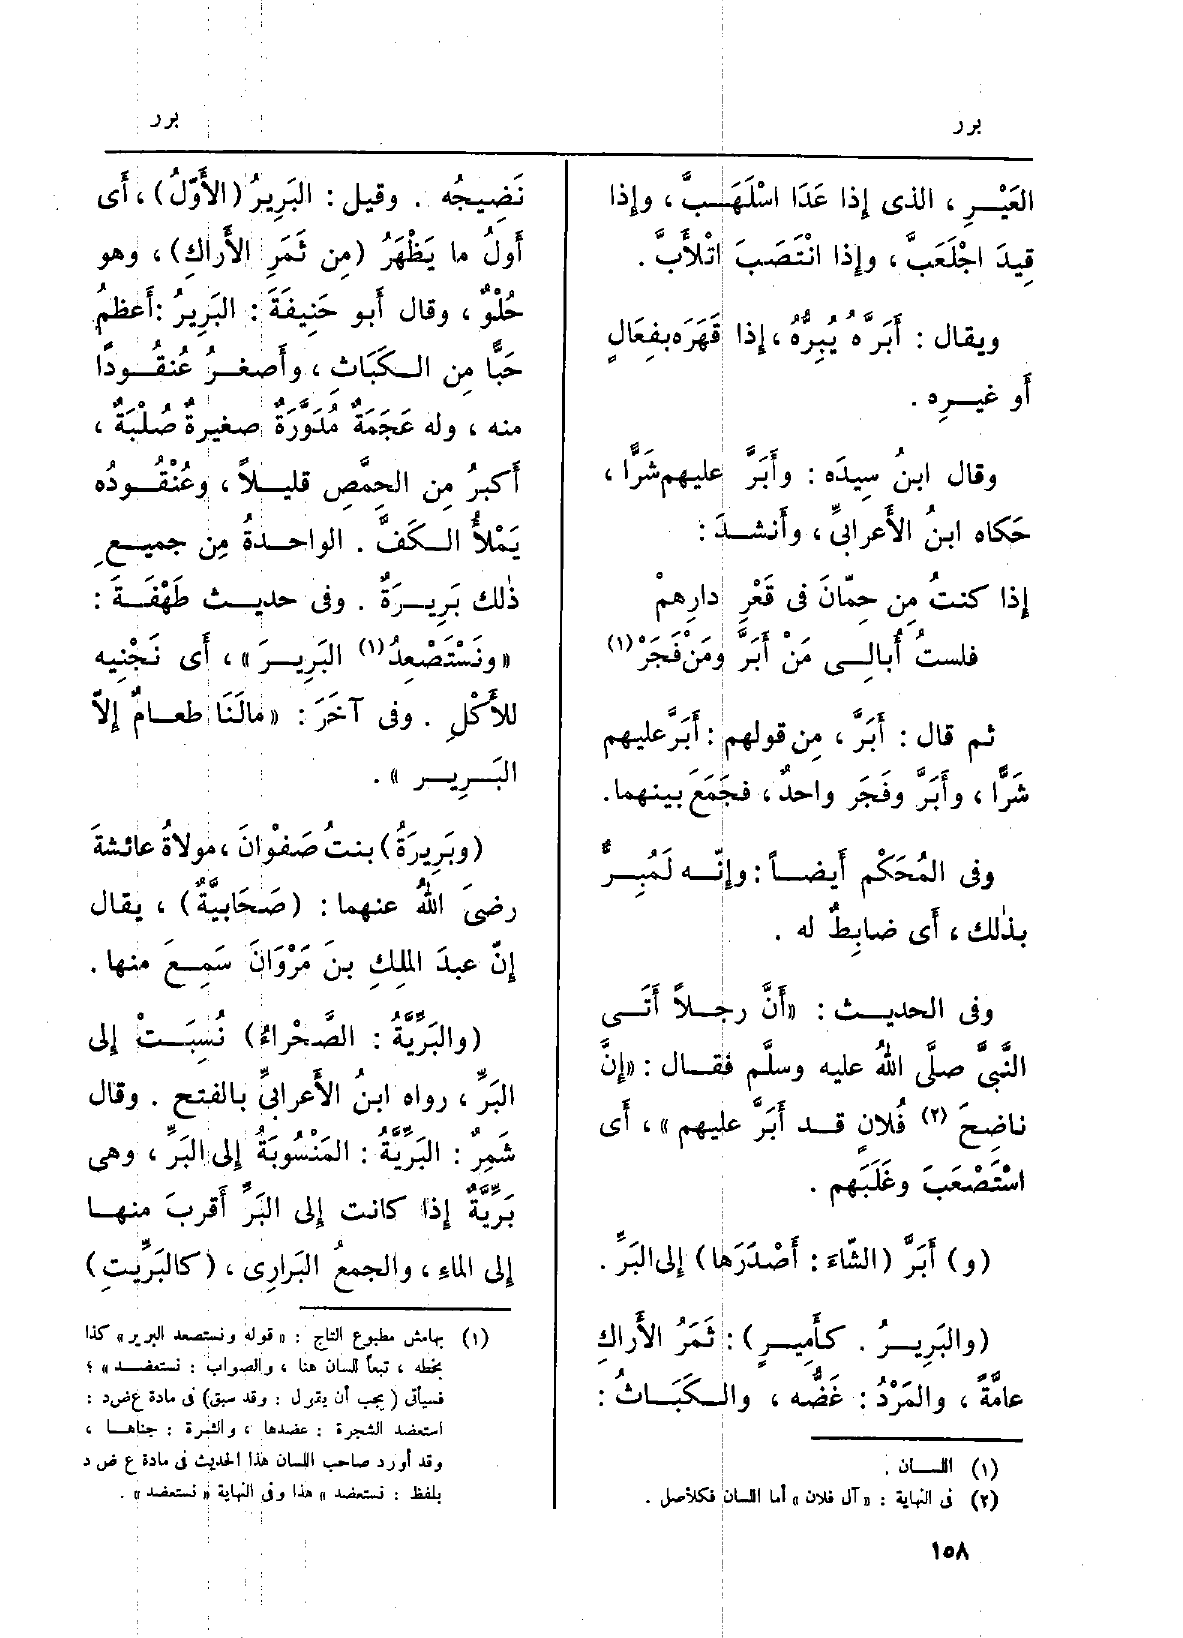 برر
برر
العَيْـرِ ، الذى إذا عَدَا اسْلَهَـبَّ ، وإذا
قِيدَ اجْلَعَبَّ ، وإذا انْتَصَبَ اتْلأَبَّ .
ويقال : أَبَرَّهُ يُبِرُّهُ ، إذا قَهَرَه بفِعَالٍ
أو غيـرِه .
وقال ابنُ سِيدَه : وأَبَرَّ عليهم شَرًّا ،
حَكاه ابنُ الأَعرابىِّ ، وأَنشـدَ :
إذا كنتُ مِن حِمّانَ فى قَعْرِ دارِهِمْ
فلستُ أُبالِـى مَنْ أَبَرَّ ومَنْ فَجَرْ (١)
ثم قال : أَبَرَّ ، مِن قولهم : أَبَرَّ عليهم
شَرًّا ، وأَبَرَّ وفَجَر واحدٌ ، فجَمَعَ بينهما.
وفى المُحَكْم أَيضـاً : وإنّـه لَمُبِـرٌّ
بذٰلك ، أَى ضابِطٌ له .
وفى الحديـث : «أَنَّ رجـلاً أَتَـى
النَّبىَّ صلَّى اللهُ عليه وسلَّم فقـال : «إنَّ
ناضِحَ (٢) فُلانٍ قـد أَبَرَّ عليهم » ، أَى
اسْتَصْعَبَ وغَلَبَهم .
(و) أَبَرَّ (الشَّاءَ : أَصْدَرَها) إلى البَرِّ .
(والبَرِيـرُ . كأَمِيـرٍ) : ثَمَرُ الأَراكِ
عامَّةً ، والمَرْدُ : غَضُّه ، والـكَبَـاثُ :
(١) اللسـان .
(٢) فى النهاية : «آل فلان» أما اللسان فكالأصل .
نَضِيجُه . وقيل : البَرِيرُ (الأَوّلُ) ، أَى
أَولُ ما يَظْهَرُ (مِن ثَمَرِ الأَراكِ) ، وهو
حُلْوٌ ، وقال أبو حَنِيفَةَ : البَرِيرُ : أَعظمُ
حَبًّا مِن الـكَبَاثِ ، وأَصغـرُ عُنقُـودًا
منه ، وله عَجَمَةٌ مُدَوَّرَةٌ صغيرةٌ صُلْبَةٌ ،
أَكبرُ مِن الحِمَّصِ قليـلاً ، وعُنْقُـودُه
يَمْلأُ الـكَفَّ . الواحـدةُ مِن جميـعِ
ذٰلك بَرِيـرَةٌ . وفى حديـث طَهْفَـةَ :
«ونَسْتَصْعِدُ (١) البَرِيـرَ » ، أَى نَجْنِيه
للأَكْلِ . وفى آخَرَ : «مالَنَا طعـامٌ إلاّ
البَـرِيـر » .
(وبَرِيرَةُ) بنتُ صَفْوانَ ، مولاةُ عائشةَ
رضىَ اللهُ عنهما : (صَحَابِيَّةٌ) ، يقال
إنّ عبدَ الملِكِ بنَ مَرْوَانَ سَمِـعَ منها .
(والبَرِّيَّةُ : الصَّحْراءُ) نُسِبَـتْ إلى
البَرِّ ، رواه ابنُ الأَعرابىِّ بالفتح . وقال
شَمِرٌ : البَرِّيَّةُ : المَنْسُوبَةُ إلى البَرِّ ، وهى
بَرِّيَّةٌ إذا كانت إلى البَرِّ أَقربَ منهـا
إلى الماءِ ، والجمعُ البَرارِى ، (كالبَرِّيتِ)
(١) بهامش مطبوع التاج : «قوله ونستصعد البرير» كذا
بخطه ، تبعاً للسان هنا ، والصواب : نستعضـد » ؟
فسيأتى ( يجب أن يقول : وقد سبق) فى مادة ع ض د :
استعضد الشجرة : عضدها ، والثمرة : جناهـا ،
وقد أورد صاحب اللسان هذا الحديث فى مادة ع ض د
بلفظ : نستعضد » هذا وفى النهاية « نستعضد » .
١٥٨